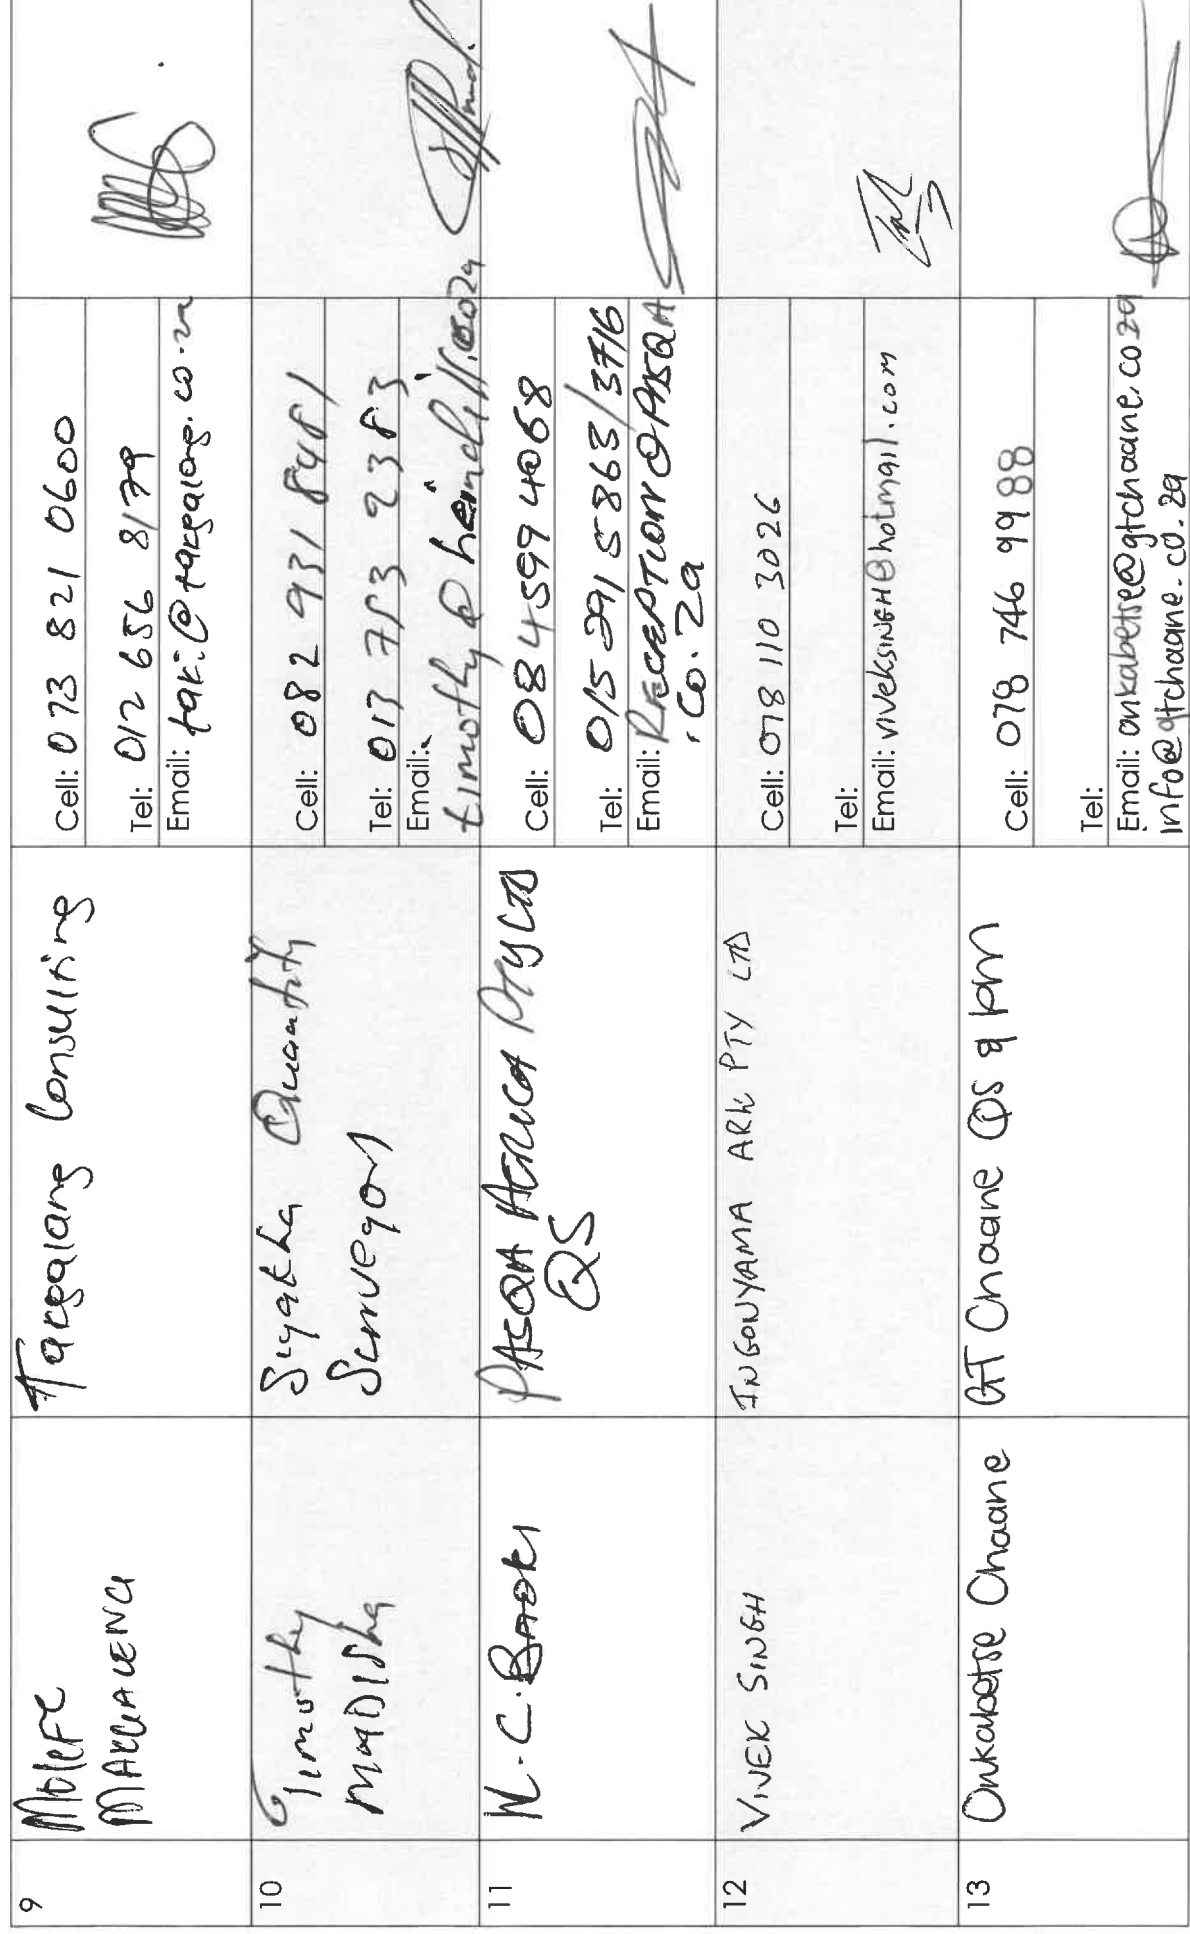 9
Molefe
Makgaleng
Takgalang Consulting
Cell: 073 821 0600
Tel: 012 656 8179
Email: taki@takgalang.co.za
10
Timothy
Madisha
Siyakha Quantity
Surveyors
Cell: 082 931 8481
Tel: 013 753 2383
Email:
11
N.C. Baoki
PASQA AFRICA PTY LTD
QS
Cell: 084 599 4068
Tel: 015 291 5863/3716
Email: RECEPTION@PASQA
.co.za
12
VIVEK SINGH
INGONYAMA ARK PTY LTD
Cell: 078 110 3026
Tel:
Email: viveksingh@hotmail.com
13
Onkabetse Chaane
GT Chaane QS & PM
Cell: 078 746 9988
Tel:
Email: onkabetse@gtchaane.co.za
info@gtchaane.co.za